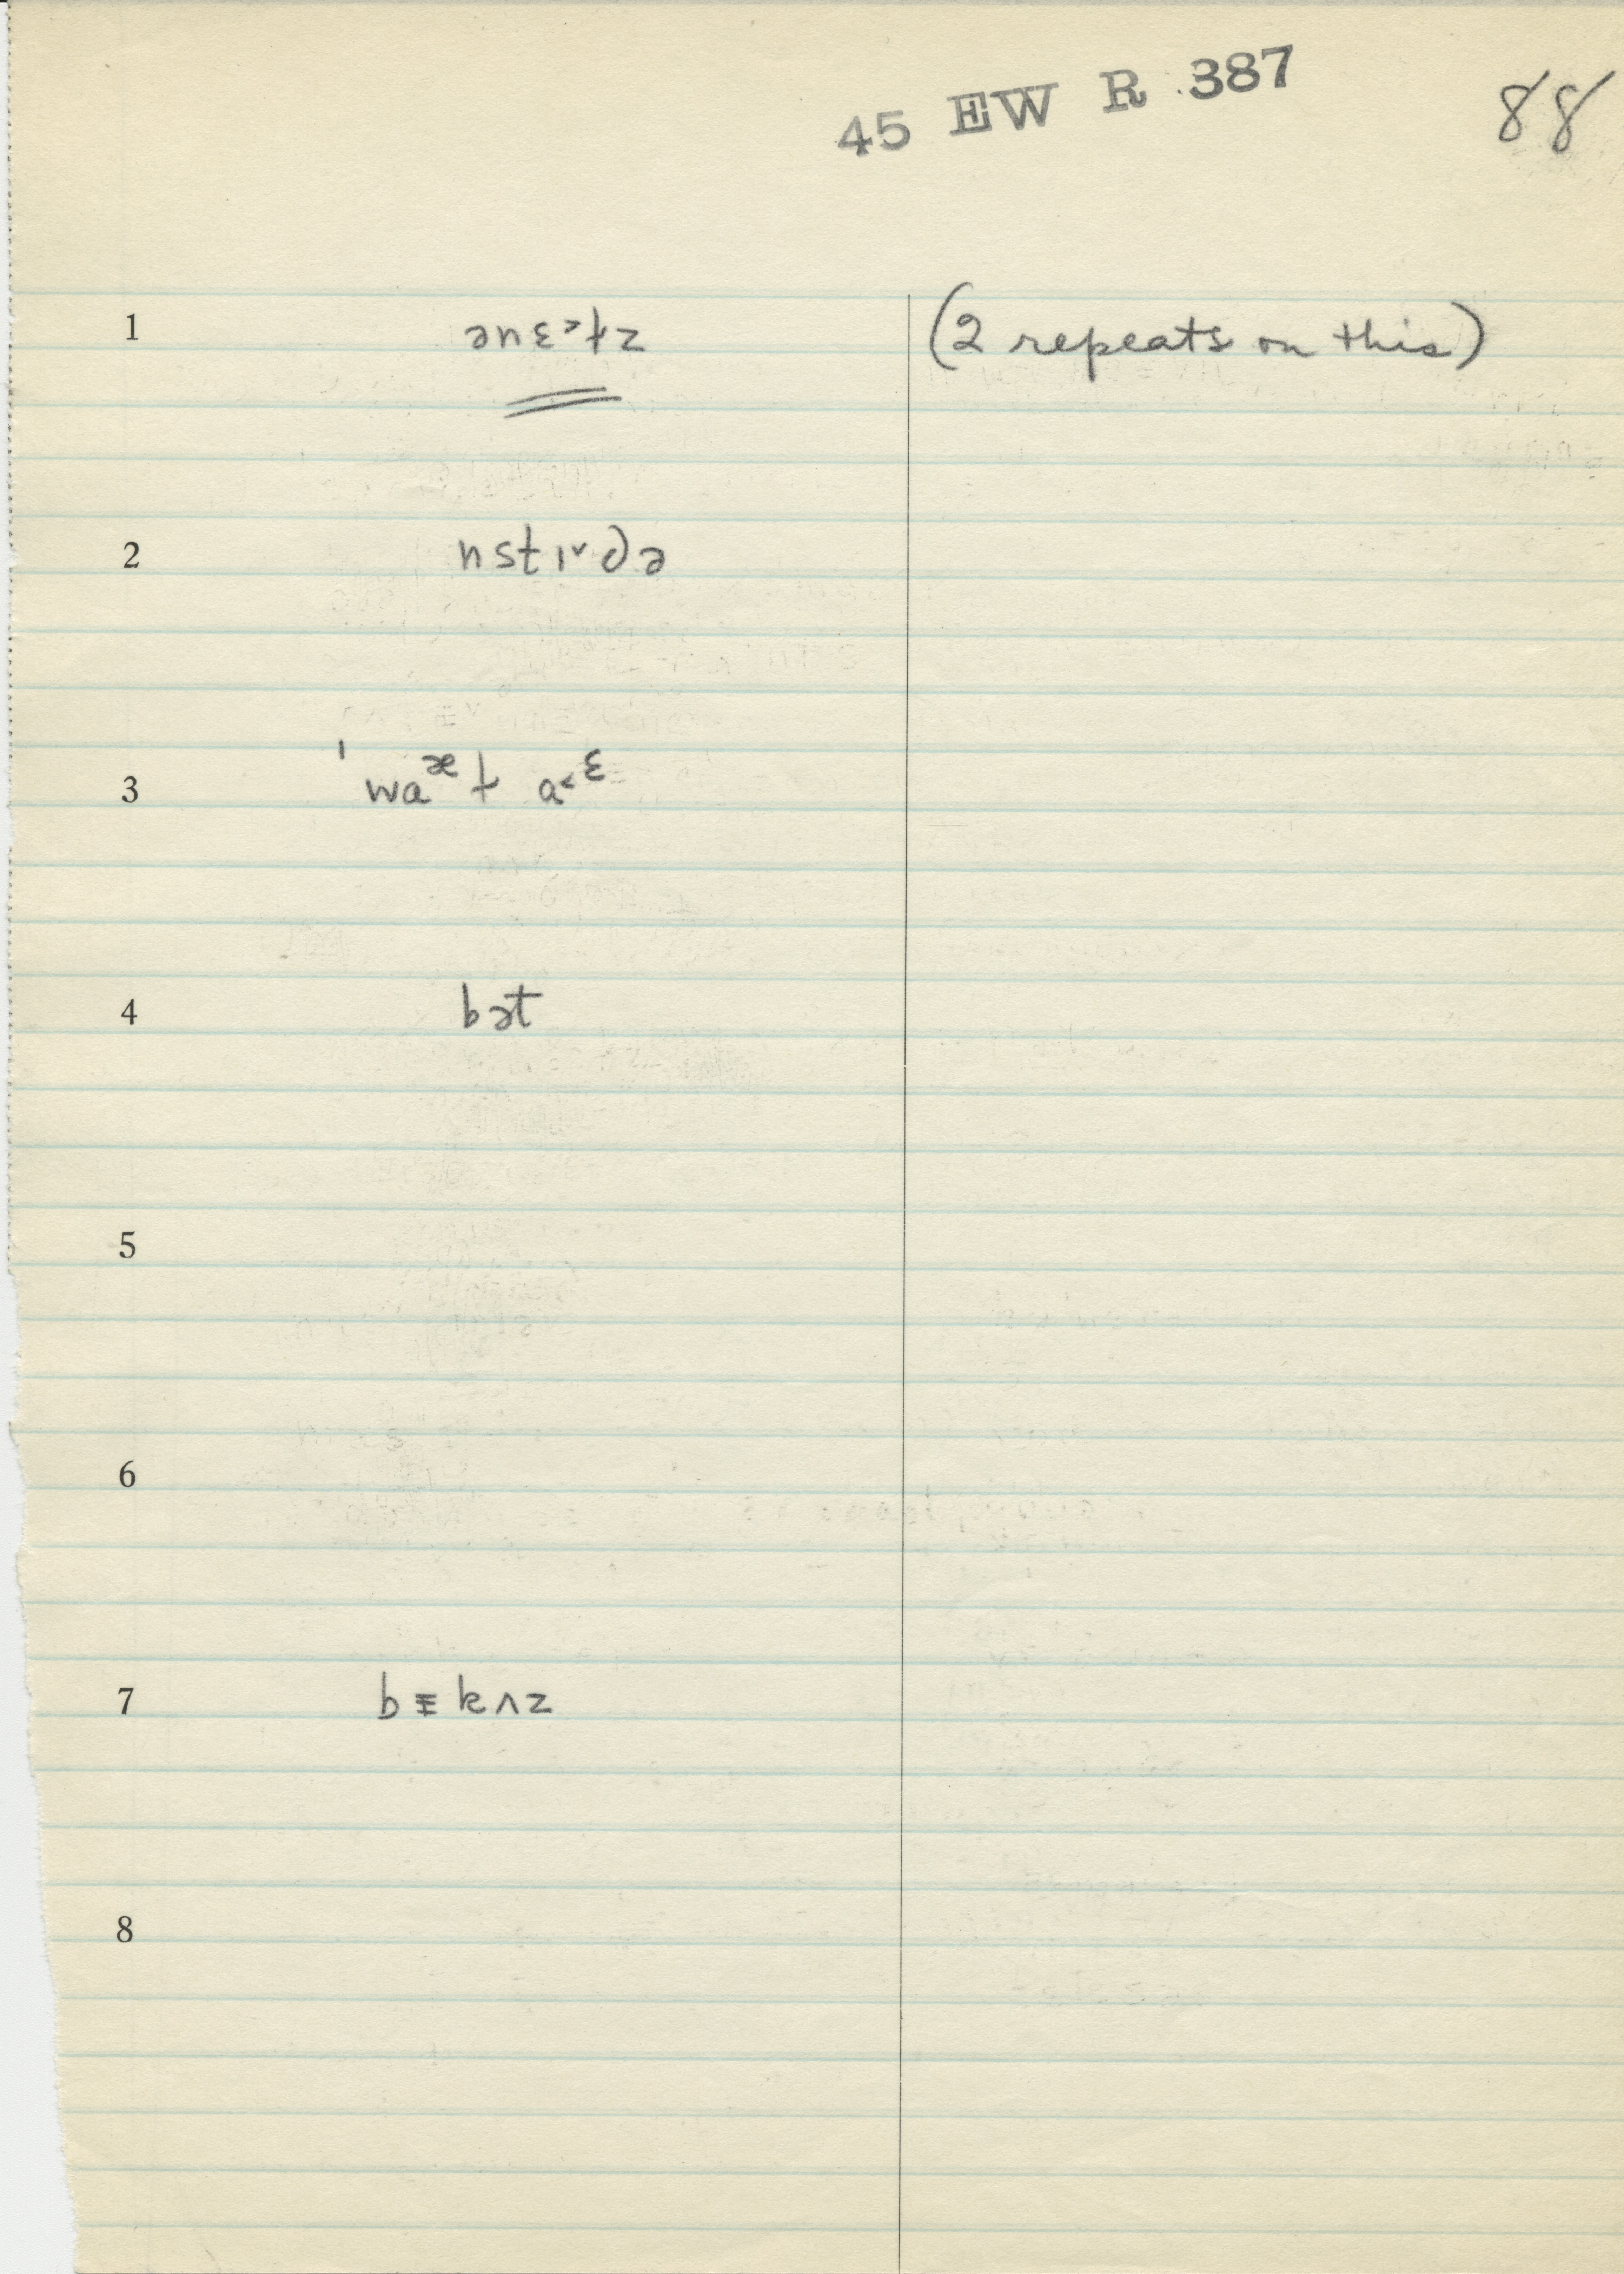 45 EW R 387
88
1 ənɛ˃ɫz (2 repeats on this)
2 nstɪ˅də
3 ˈwaᵆɫ a˂ᵋ
4 bət
5
6
7 bᵻkʌz
8